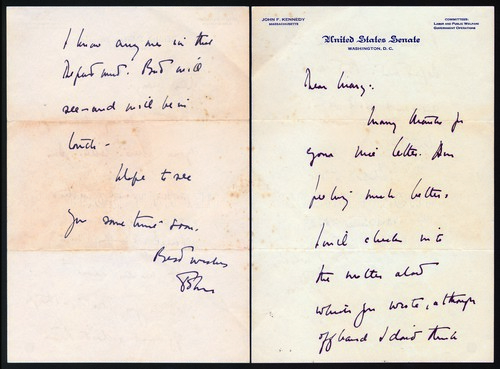 JOHN F. KENNEDY
MASSACHUSETTS
COMMITTEES:
LABOR AND PUBLIC WELFARE
GOVERNMENT OPERATIONS
United States Senate
WASHINGTON, D. C.
Dear Mary:
Many thanks for
your nice letter. Am
feeling much better.
I will check into
the matter about
which you wrote, although
offhand I don't think
I know anyone in that
Department. But will
see and will be in
touch -
Hope to see
you some time soon.
Best wishes